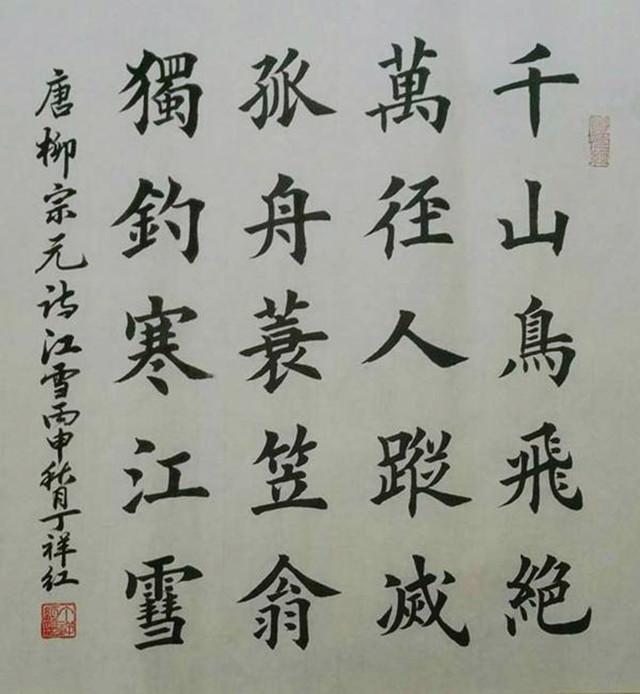 千山鳥飛絶
萬徑人蹤滅
孤舟蓑笠翁
獨釣寒江雪
唐柳宗元诗江雪丙申秋月丁祥红